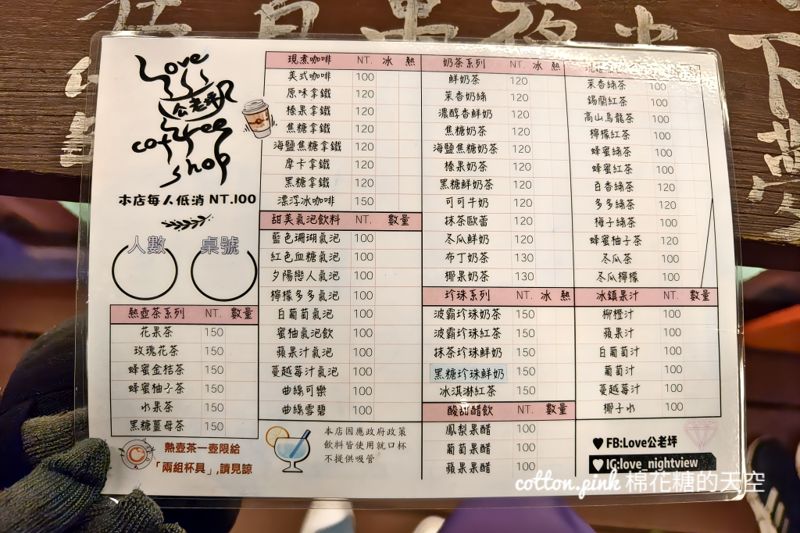 Love
公老坪
coffee
shop
本店每人低消 NT.100
人數 桌號
熱壺茶系列 NT. 數量
花果茶 150
玫瑰花茶 150
蜂蜜金桔茶 150
蜂蜜柚子茶 150
水果茶 150
黑糖薑母茶 150
熱壺茶一壺限給
「兩組杯具」,請見諒
現煮咖啡 NT. 冰 熱
美式咖啡 100
原味拿鐵 120
榛果拿鐵 120
焦糖拿鐵 120
海鹽焦糖拿鐵 120
摩卡拿鐵 120
黑糖拿鐵 120
漂浮冰咖啡 150
甜美氣泡飲料 NT. 數量
藍色珊瑚氣泡 100
紅色血糖氣泡 100
夕陽戀人氣泡 100
檸檬多多氣泡 100
白葡萄氣泡 100
蜜柚氣泡飲 100
蘋果汁氣泡 100
蔓越莓汁氣泡 100
曲線可樂 100
曲線雪碧 100
本店因應政府政策
飲料皆使用就口杯
不提供吸管
奶茶系列 NT. 冰 熱
鮮奶茶 120
茉香奶綠 120
濃醇香鮮奶 120
焦糖奶茶 120
海鹽焦糖奶茶 120
榛果奶茶 120
黑糖鮮奶茶 120
可可牛奶 120
抹茶歐蕾 120
冬瓜鮮奶 120
布丁奶茶 130
椰果奶茶 130
珍珠系列 NT. 冰 熱
波霸珍珠奶茶 150
波霸珍珠紅茶 150
抹茶珍珠鮮奶 150
黑糖珍珠鮮奶 150
冰淇淋紅茶 150
酸甜醋飲 NT. 數量
鳳梨果醋 100
葡萄果醋 100
蘋果果醋 100
茉香綠茶 100
錫蘭紅茶 100
高山烏龍茶 100
檸檬紅茶 100
蜂蜜綠茶 100
蜂蜜紅茶 100
百香綠茶 120
多多綠茶 120
梅子綠茶 100
蜂蜜柚子茶 120
冬瓜茶 100
冬瓜檸檬 100
冰鎮果汁 NT. 數量
柳橙汁 100
蘋果汁 100
白葡萄汁 100
葡萄汁 100
蔓越莓汁 100
椰子水 100
FB:Love公老坪
IG:love_nightview
cotton.pink 棉花糖的天空